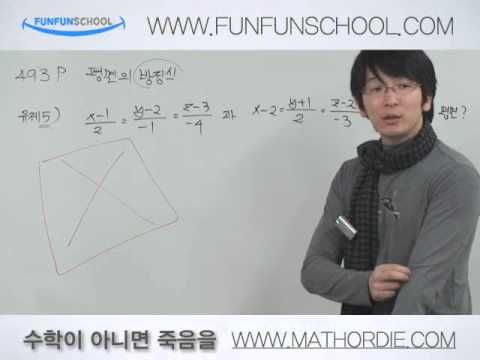 FUNFUNSCHOOL
WWW.FUNFUNSCHOOL.COM
493 P 평면의 방정식
유제5) x-1/2 = y-2/-1 = z-3/-4 과 x-2 = y+1/2 = z-2/-3 평면?
수학이 아니면 죽음을 WWW.MATHORDIE.COM